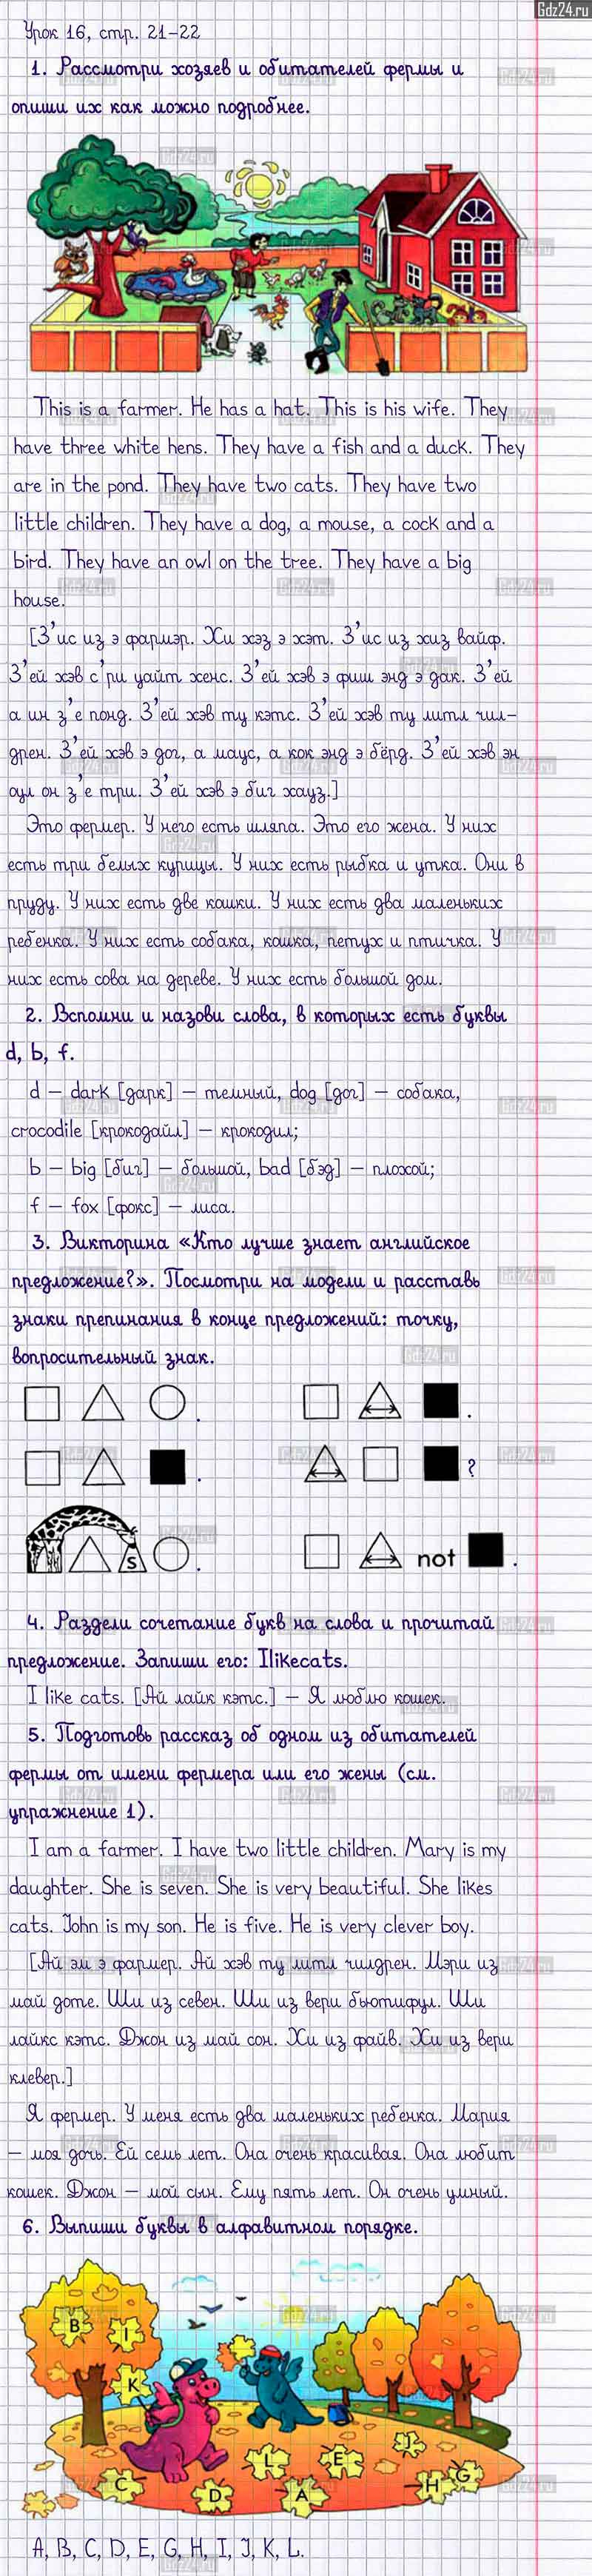 Gdz24.ru
Урок 16, стр. 21-22
1. Рассмотри хозяев и обитателей фермы и
опиши их как можно подробнее.
This is a farmer. He has a hat. This is his wife. They
have three white hens. They have a fish and a duck. They
are in the pond. They have two cats. They have two
little children. They have a dog, a mouse, a cock and a
bird. They have an owl on the tree. They have a big
house.
[З'ис из э фармэр. Хи хэз э хэт. З'ис из хиз вайф.
З'ей хэв с'ри уайт хенс. З'ей хэв э фиш энд э дак. З'ей
а ин з'е понд. З'ей хэв ту кэтс. З'ей хэв ту литл чил-
дрен. З'ей хэв э дог, а маус, а кок энд э бёрд. З'ей хэв эн
оул он з'е три. З'ей хэв э биг хауз.]
Это фермер. У него есть шляпа. Это его жена. У них
есть три белых курицы. У них есть рыбка и утка. Они в
пруду. У них есть две кошки. У них есть два маленьких
ребенка. У них есть собака, кошка, петух и птичка. У
них есть сова на дереве. У них есть большой дом.
2. Вспомни и назови слова, в которых есть буквы
d, b, f.
d – dark [дарк] – темный, dog [дог] – собака,
crocodile [крокодайл] – крокодил;
b – big [биг] – большой, bad [бэд] – плохой;
f – fox [фокс] – лиса.
3. Викторина «Кто лучше знает английское
предложение?». Посмотри на модели и расставь
знаки препинания в конце предложений: точку,
вопросительный знак.
. .
. ?
s . not .
4. Раздели сочетание букв на слова и прочитай
предложение. Запиши его: Ilikecats.
I like cats. [Ай лайк кэтс.] – Я люблю кошек.
5. Подготовь рассказ об одном из обитателей
фермы от имени фермера или его жены (см.
упражнение 1).
I am a farmer. I have two little children. Mary is my
daughter. She is seven. She is very beautiful. She likes
cats. John is my son. He is five. He is very clever boy.
[Ай эм э фармер. Ай хэв ту литл чилдрен. Мэри из
май доте. Ши из севен. Ши из вери бьютифул. Ши
лайкс кэтс. Джон из май сон. Хи из файв. Хи из вери
клевер.]
Я фермер. У меня есть два маленьких ребенка. Мария
– моя дочь. Ей семь лет. Она очень красивая. Она любит
кошек. Джон – мой сын. Ему пять лет. Он очень умный.
6. Выпиши буквы в алфавитном порядке.
B I
K
L E J
C D A H G
A, B, C, D, E, G, H, I, J, K, L.